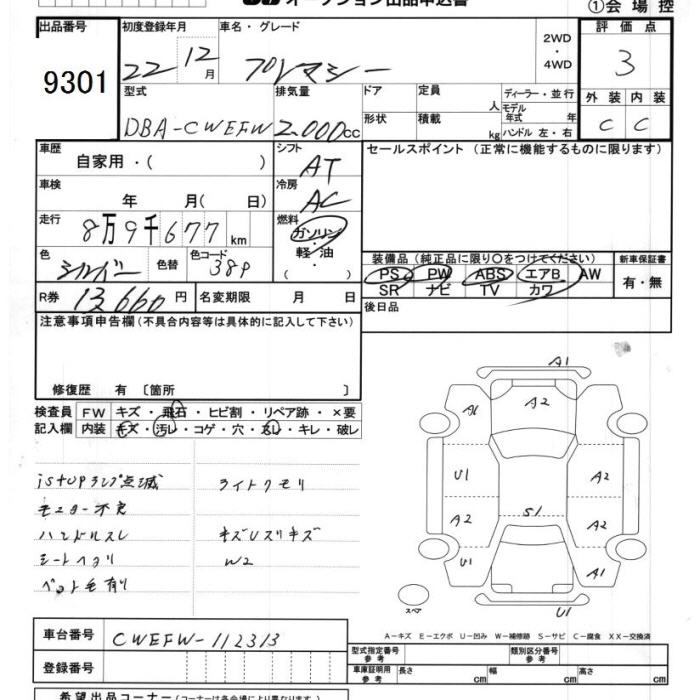 オークション出品申込書
①会場控
出品番号 9301
初度登録年月 22 12月
車名・グレード プレマシー
2WD ・ 4WD
評価点 3
型式 DBA-CWEFW
排気量 2,000cc
ドア
形状
定員 人
積載 kg
ディーラー・並行
モデル年式 年
ハンドル 左・右
外装 内装
C C
車歴 自家用・( )
シフト AT
セールスポイント (正常に機能するものに限ります)
車検 年 月( 日)
冷房 AC
走行 8万9千677km
燃料 ガソリン・軽油・( )
色 シルバー 色替
色コード 38P
装備品 (純正品に限り○をつけてください)
PS PW ABS エアB AW
SR ナビ TV カワ
新車保証書
有・無
R券 13,660円
名変期限 月 日
後日品
注意事項申告欄 (不具合内容等は具体的に記入して下さい)
修復歴 有 〔箇所 〕
検査員記入欄
FW キズ・飛石・ヒビ割・リペア跡・×要
内装 キズ・汚レ・コゲ・穴・・キレ・破レ
iSTOPランプ点滅
ライトクモリ
モニター不良
ハンドルスレ
キズUスリキズ
シートヘタリ
W2
ペット毛有り
A1
A2
U1
A2
A2
S1
A2
U1
A1
U1
スペア
A-キズ E-エクボ U-凹み W-補修跡 S-サビ C-腐食 XX-交換済
車台番号 CWEFW-112313
登録番号
型式指定番号 参考
類別区分番号 参考
車庫証明用 参考
長さ cm 幅 cm 高さ cm
希望出品コーナー (コーナーは各会場により異なります。)